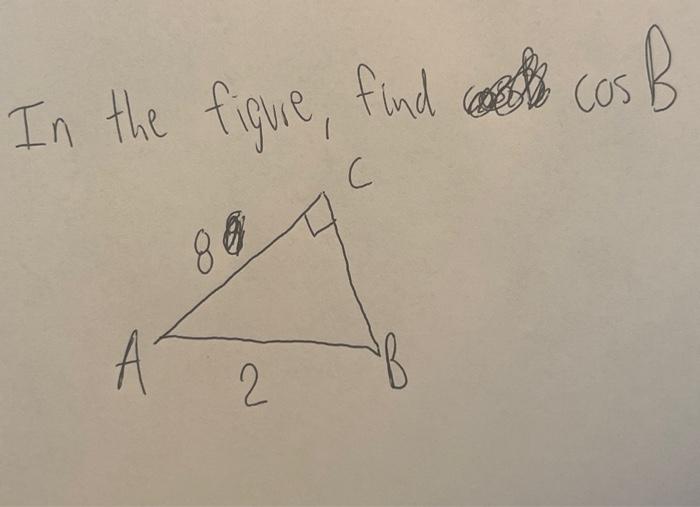 In the figure, find cos B
C
8
A
2
B